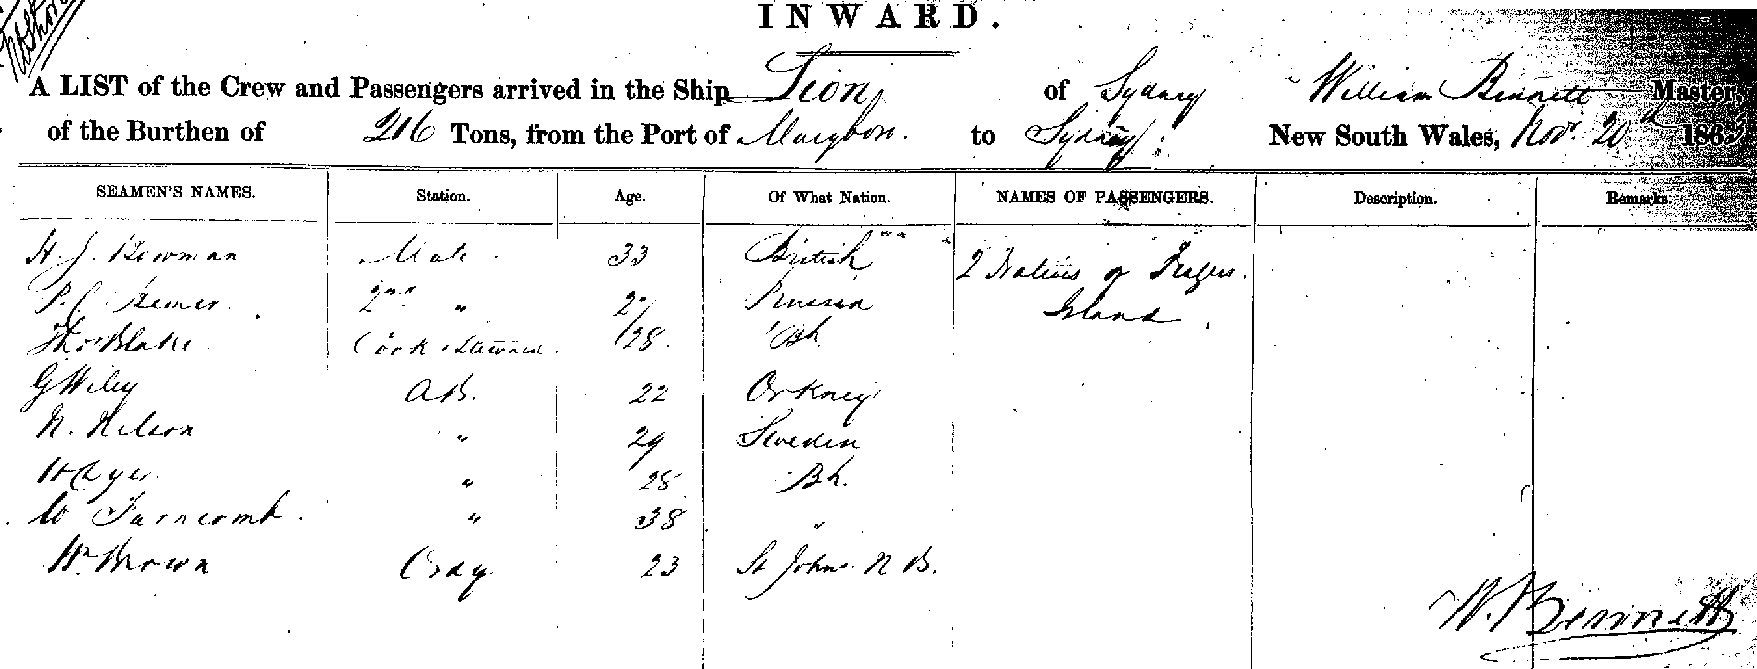 INWARD.
A LIST of the Crew and Passengers arrived in the Ship Lion of Sydney William Bennett Master,
of the Burthen of 216 Tons, from the Port of Marybor. to Sydney. New South Wales, Novr. 20th 186
SEAMEN'S NAMES. Station. Age. Of What Nation. NAMES OF PASSENGERS. Description. Remarks.
H. J. Bowman Mate 33 British 2 Natives of Frazers
Island
2nd " 27 Prussia
Thos Blake Cook & Steward 28 Bh
G Wiley AB. 22 Orkney
N. Nelson " 29 Sweden
" 28 Bh.
W Farncomb " 38 "
Wm Brown Ordy 23 St Johns N B.
W. Bennett